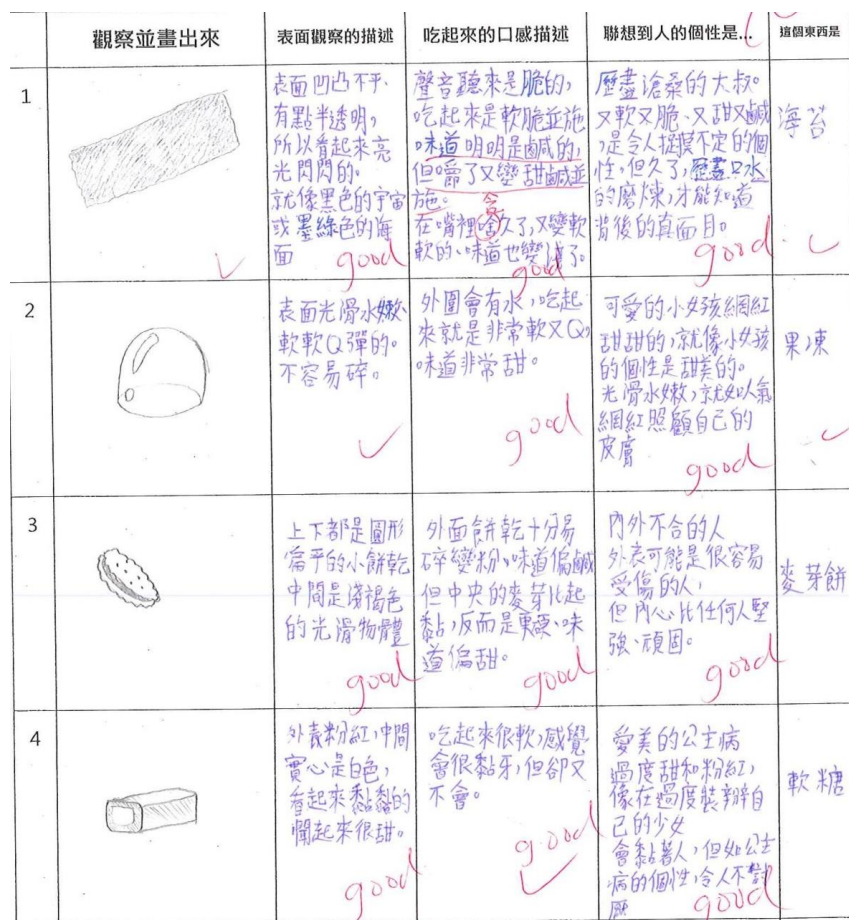 觀察並畫出來
表面觀察的描述
吃起來的口感描述
聯想到人的個性是...
這個東西是
1
表面凹凸不平、
有點半透明,
所以看起來亮
光閃閃的。
就像黑色的宇宙
或墨綠色的海
面
good
聲音聽來是脆的,
吃起來是軟脆並施
味道明明是鹹的,
但嚼了又變甜鹹並
施。
在嘴裡含久了,又變軟
軟的、味道也變淡了。
good
歷盡滄桑的大叔。
又軟又脆、又甜又鹹
,是令人捉摸不定的個
性,但久了,歷盡口水
的磨煉,才能知道
背後的真面目。
good
海苔
2
表面光滑水嫩、
軟軟Q彈的。
不容易碎。
外圍會有水,吃起
來就是非常軟又Q,
味道非常甜。
good
可愛的小女孩網紅
甜甜的,就像小女孩
的個性是甜美的。
光滑水嫩,就如人氣
網紅照顧自己的
皮膚
good
果凍
3
上下都是圓形
扁平的小餅乾
中間是淺褐色
的光滑物體
good
外面餅乾十分易
碎變粉,味道偏鹹
但中央的麥芽比起
黏,反而是更硬、味
道偏甜。
good
內外不合的人
外表可能是很容易
受傷的人,
但內心比任何人堅
強、頑固。
good
麥芽餅
4
外表粉紅,中間
實心是白色,
看起來黏黏的
聞起來很甜。
good
吃起來很軟,感覺
會很黏牙,但卻又
不會。
good
愛美的公主病
過度甜和粉紅,
像在過度裝辦自
己的少女
會黏著人,但如公主
病的個性,令人不
good
軟糖